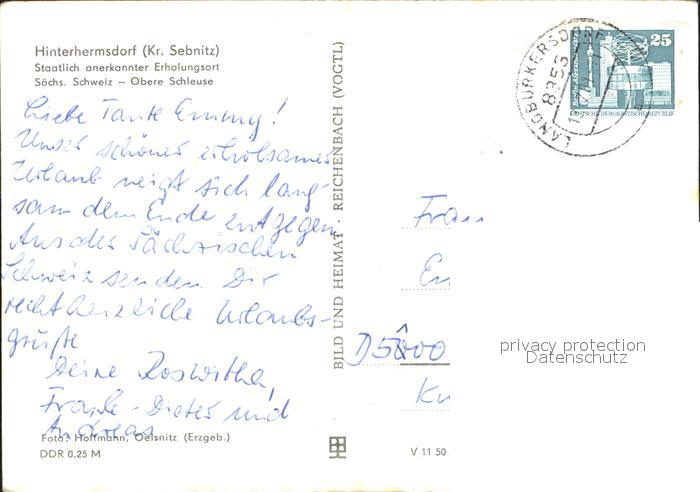 Hinterhermsdorf (Kr. Sebnitz)
Staatlich anerkannter Erholungsort
Sächs. Schweiz – Obere Schleuse
Liebe Tante Emmy!
Unser schöner erholsamer
Urlaub neigt sich lang-
sam dem Ende entgegen
Aus der Sächsischen
Schweiz senden Dir
recht herzliche Urlaubs-
grüße
Deine Roswitha,
Frank-Dieter und
Andreas
Foto: Hoffmann, Oelsnitz (Erzgeb.)
DDR 0,25 M
BILD UND HEIMAT · REICHENBACH (VOGTL)
V 11 50
LANDBURKERSDORF
8355
25
Berlin, Alexanderplatz
DEUTSCHE DEMOKRATISCHE REPUBLIK
Frau
En
D5000
Kn
privacy protection
Datenschutz